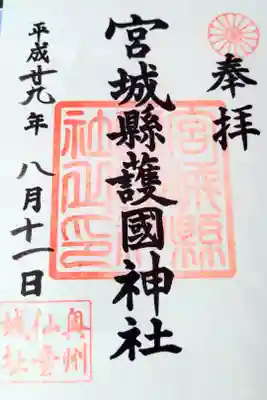 奉拝
宮城縣護國神社
平成廿九年 八月十一日
宮城縣
護國神
社之印
奥州
仙臺
城址